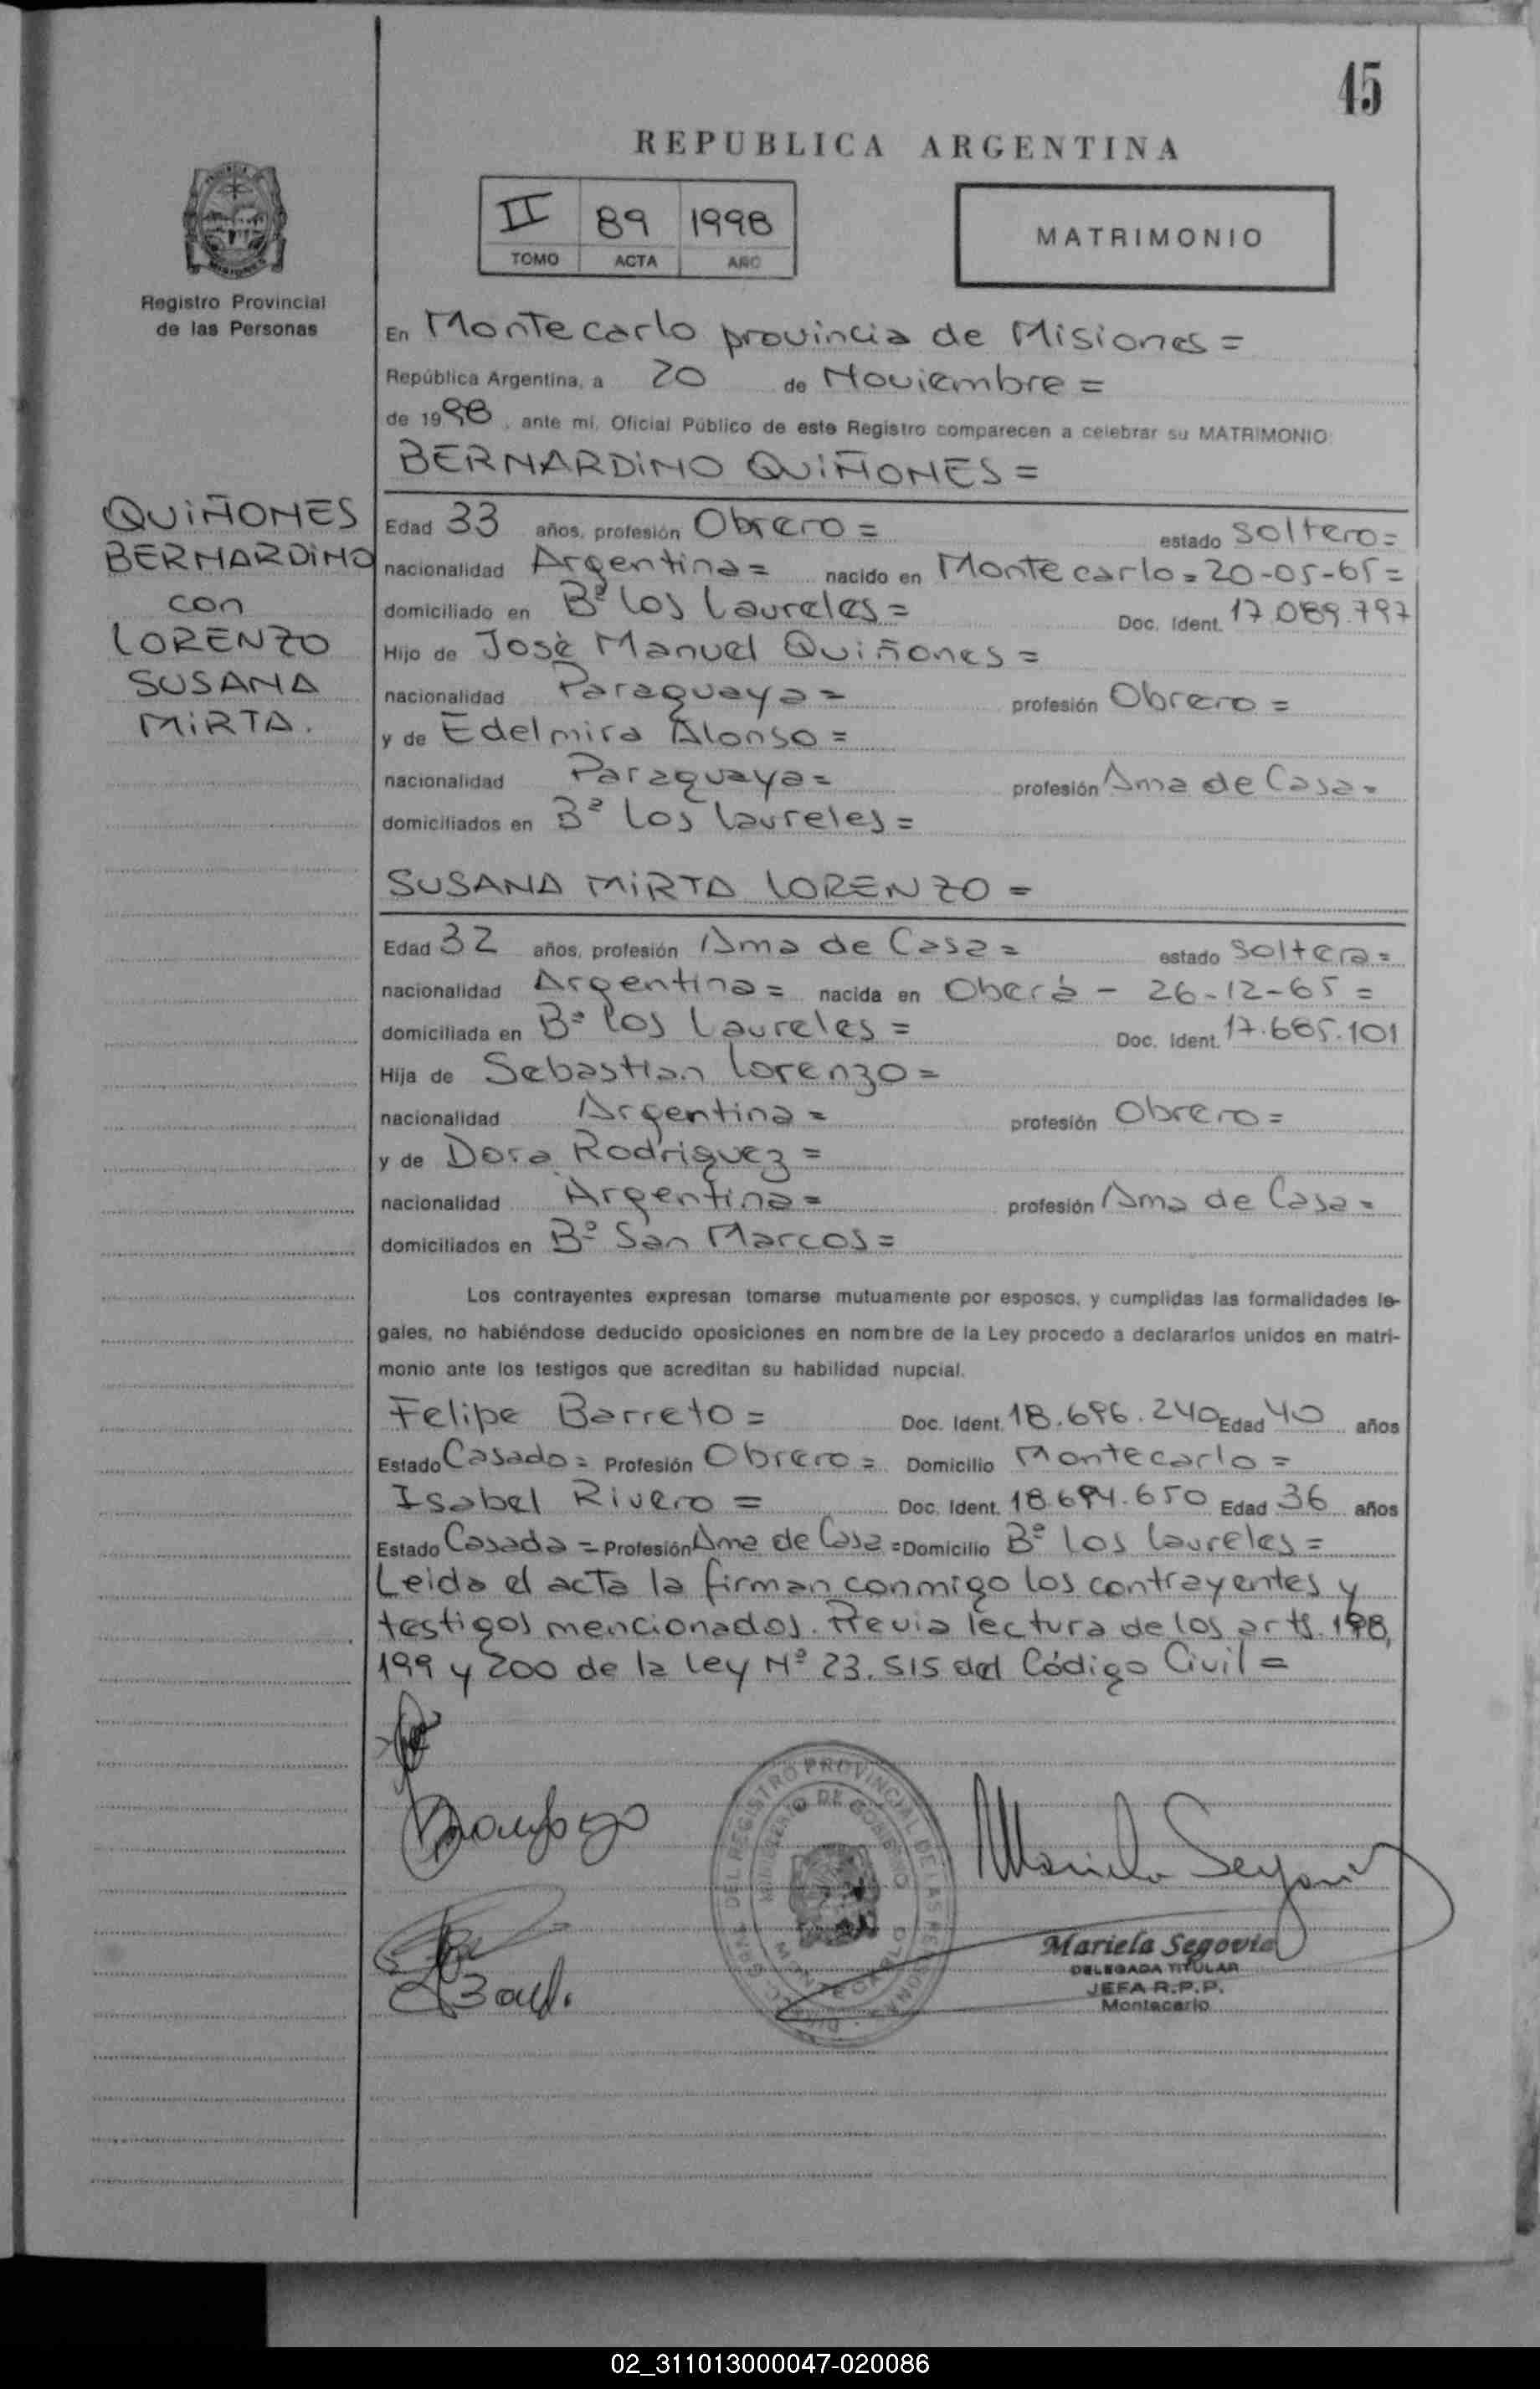 45
REPUBLICA ARGENTINA
II 89 1998
TOMO ACTA AÑO
MATRIMONIO
Registro Provincial
de las Personas
En Montecarlo provincia de Misiones =
República Argentina, a 20 de Noviembre =
de 1998, ante mi, Oficial Público de este Registro comparecen a celebrar su MATRIMONIO:
BERNARDINO QUIÑONES =
QUIÑONES
BERNARDINO
con
LORENZO
SUSANA
MIRTA.
Edad 33 años, profesión Obrero = estado Soltero =
nacionalidad Argentina = nacido en Montecarlo = 20-05-65 =
domiciliado en Bº Los Laureles = Doc. Ident. 17.089.797
Hijo de José Manuel Quiñones =
nacionalidad Paraguaya = profesión Obrero =
y de Edelmira Alonso =
nacionalidad Paraguaya = profesión Ama de Casa =
domiciliados en Bº Los Laureles =
SUSANA MIRTA LORENZO =
Edad 32 años, profesión Ama de Casa = estado Soltera =
nacionalidad Argentina = nacida en Oberá - 26-12-65 =
domiciliada en Bº Los Laureles = Doc. Ident. 17.685.101
Hija de Sebastian Lorenzo =
nacionalidad Argentina = profesión Obrero =
y de Dora Rodriguez =
nacionalidad Argentina = profesión Ama de Casa =
domiciliados en Bº San Marcos =
Los contrayentes expresan tomarse mutuamente por esposos, y cumplidas las formalidades le-
gales, no habiéndose deducido oposiciones en nombre de la Ley procedo a declararlos unidos en matri-
monio ante los testigos que acreditan su habilidad nupcial.
Felipe Barreto = Doc. Ident. 18.696.240 Edad 40 años
Estado Casado = Profesión Obrero = Domicilio Montecarlo =
Isabel Rivero = Doc. Ident. 18.694.650 Edad 36 años
Estado Casada = Profesión Ama de Casa = Domicilio Bº Los Laureles =
Leida el acta la firman conmigo los contrayentes y
testigos mencionados. Previa lectura de los arts. 198,
199 y 200 de la Ley Nº 23.515 del Código Civil =
Mariela Segovia
DELEGADA TITULAR
JEFA R.P.P.
Montecarlo
DEL REGISTRO PROVINCIAL DE LAS PERSONAS
MINISTERIO DE GOBIERNO
MONTECARLO
02_311013000047-020086